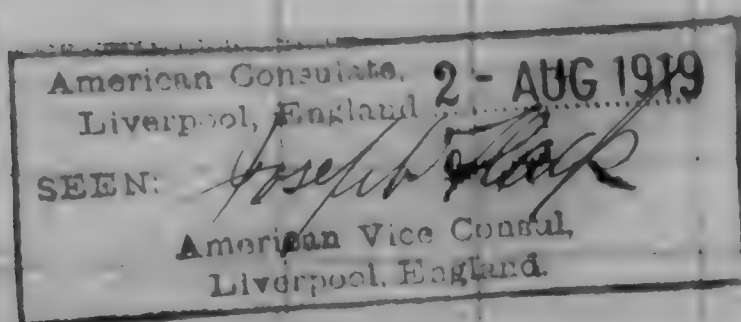 American Consulate, 2 - AUG 1919
Liverpool, England
SEEN: Joseph Flack
American Vice Consul,
Liverpool, England.